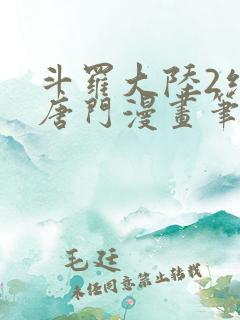 斗羅大陸2
唐門漫畫筆
毛廷
未經同意禁止轉載